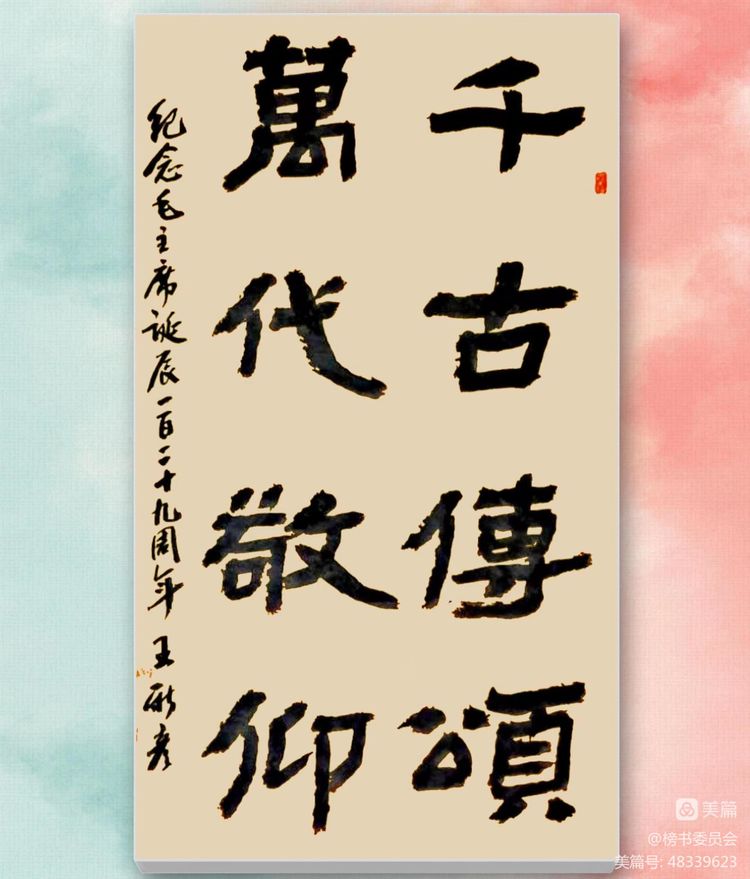 千古傳頌
萬代敬仰
紀念毛主席誕辰一百二十九周年 王彦
美篇
@榜书委员会
美篇号: 48339623